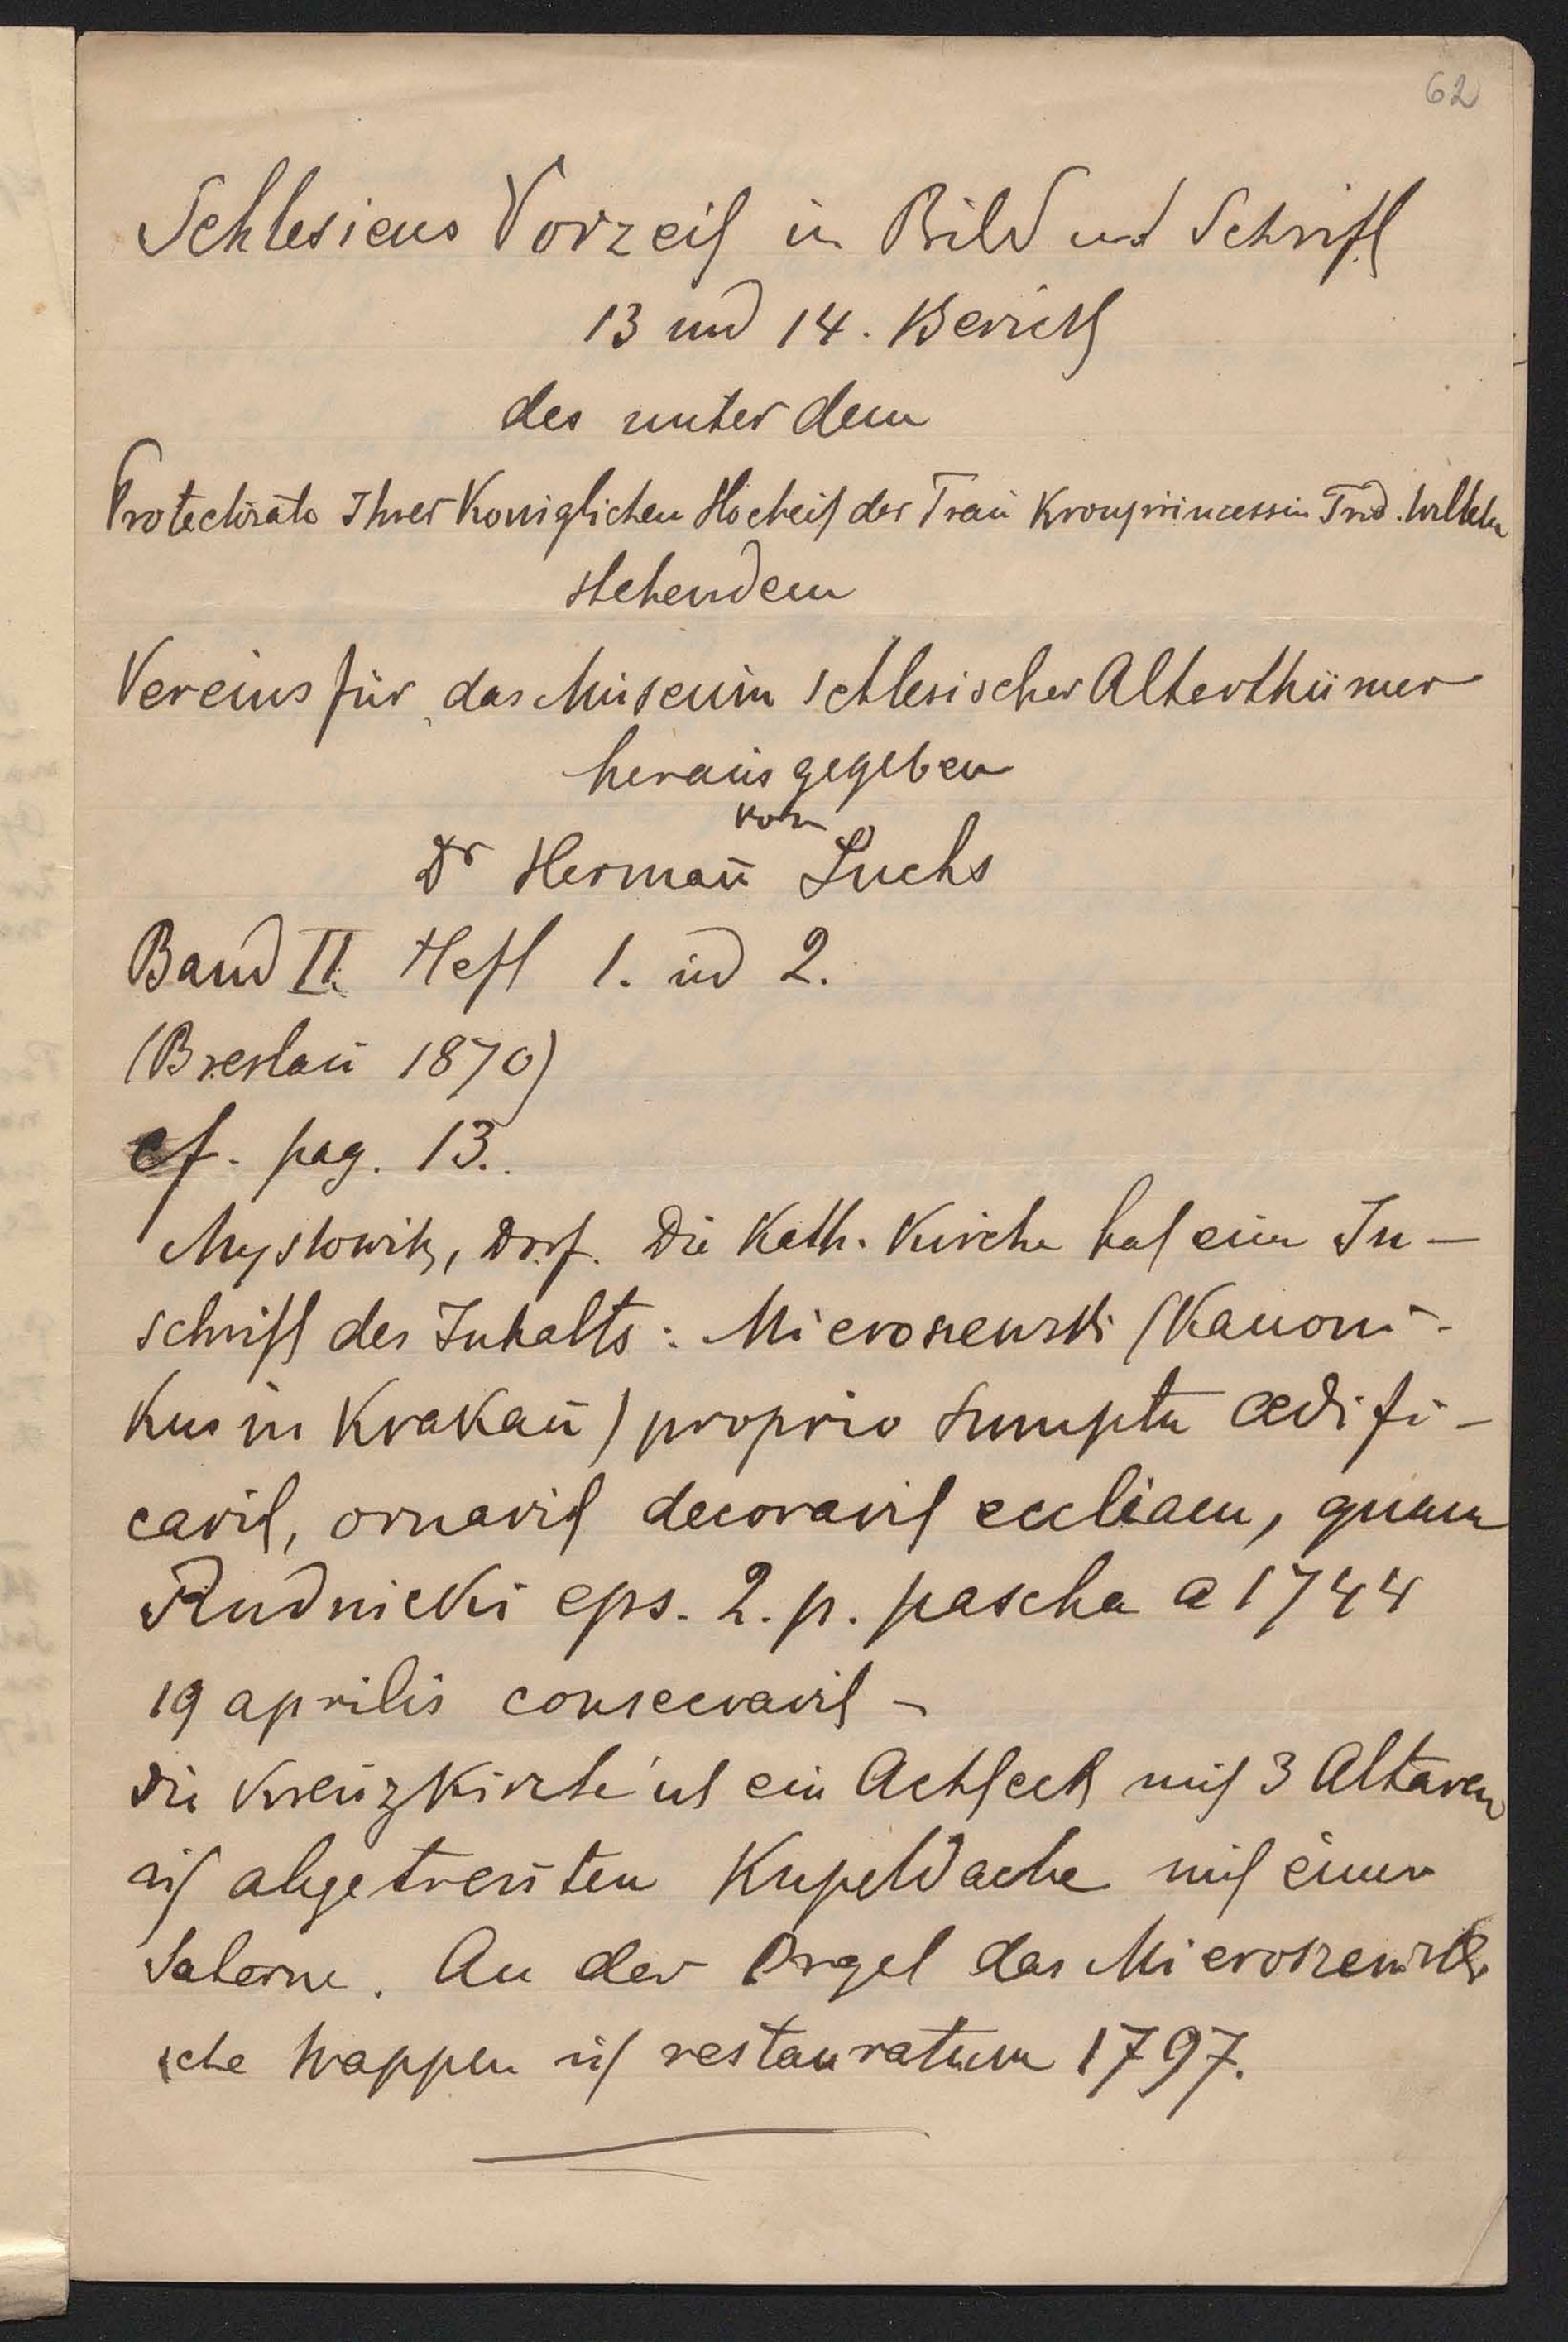 62
Schlesiens Vorzeit in Bild und Schrift
13 und 14. Bericht
des unter dem
Protectorate Ihrer Königlichen Hocheit der Frau Kronprincessin Frd. Wilhelm
stehendem
Vereins für das Museum schlesischer Alterthümer
herausgegeben
von
Dr Hermañ Luchs
Band II Heft 1. ud 2.
(Breslau 1870)
cf. pag. 13.
Myslowitz, Dorf. Die Kath. Kirche hat eine In-
schrift des Inhalts: Mieroszewski (Kanoni-
kus in Krakau) proprio sumptu ædifi-
cavit, ornavit decoravit eccliam, quam
Rudnicki eps. 2. p. pascha a 1744
19 aprilis consecravit –
die Kreuzkirche ist ein Achteck mit 3 Altären
mit einer
Laterne. An der Orgel das Mieroszewski
sche Wappen restauratum 1797.